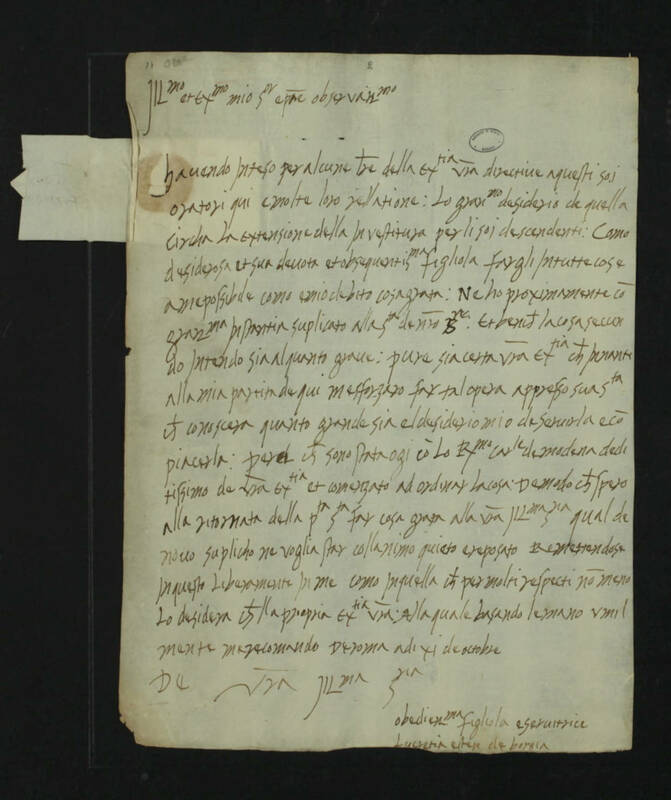 Ill.mo et Ex.mo mio S.or e p̄re observan.mo
havendo Inteso per alcune l̄re della Ex.tia v̄ra directive a questi soi
oratori qui e molte loro rellatione: Lo gran.mo desiderio de quella
circha La extensione della Investitura per li soi descendenti: Como
desiderosa et sua devota et obsequentis.ma figliola fargli In tutte cose
a me possibile como e mio debito cosa grata: Ne ho proximamente cō
gran.ma Instantia suplicato alla S.ta de n̄ro S.re: Et benc̄h la cosa secun
do Intendo sia alquanto grave: pure sia certa v̄ra Ex.tia c̄h Innante
alla mia partita de qui me sforzaro far tal opera appresso sua S.ta
c̄h conoscera quanto grande sia el desiderio mio de servirla e cō
piacerla: c̄h sono stata ogi cō Lo R.mo Car.le de modena dedi
tissimo de v̄ra Ex.tia et comenzato ad ordinar la cosa: De modo c̄h spero
alla ritornata della p.ta S.ta far cosa grata alla v̄ra Ill.ma S.ria qual de
novo suplicho ne voglia star coll animo quieto e reposato Remettendose
In questo Liberamente In me como In quella c̄h per molti respecti nō meno
Lo desidera c̄h lla propria Ex.tia v̄ra: Alla quale basando le mano umil
mente me recomando De roma a di xi de octobre
De v̄ra Ill.ma S.ria
obedien.ma figliola e servitrice
Lucretia esten de borgia